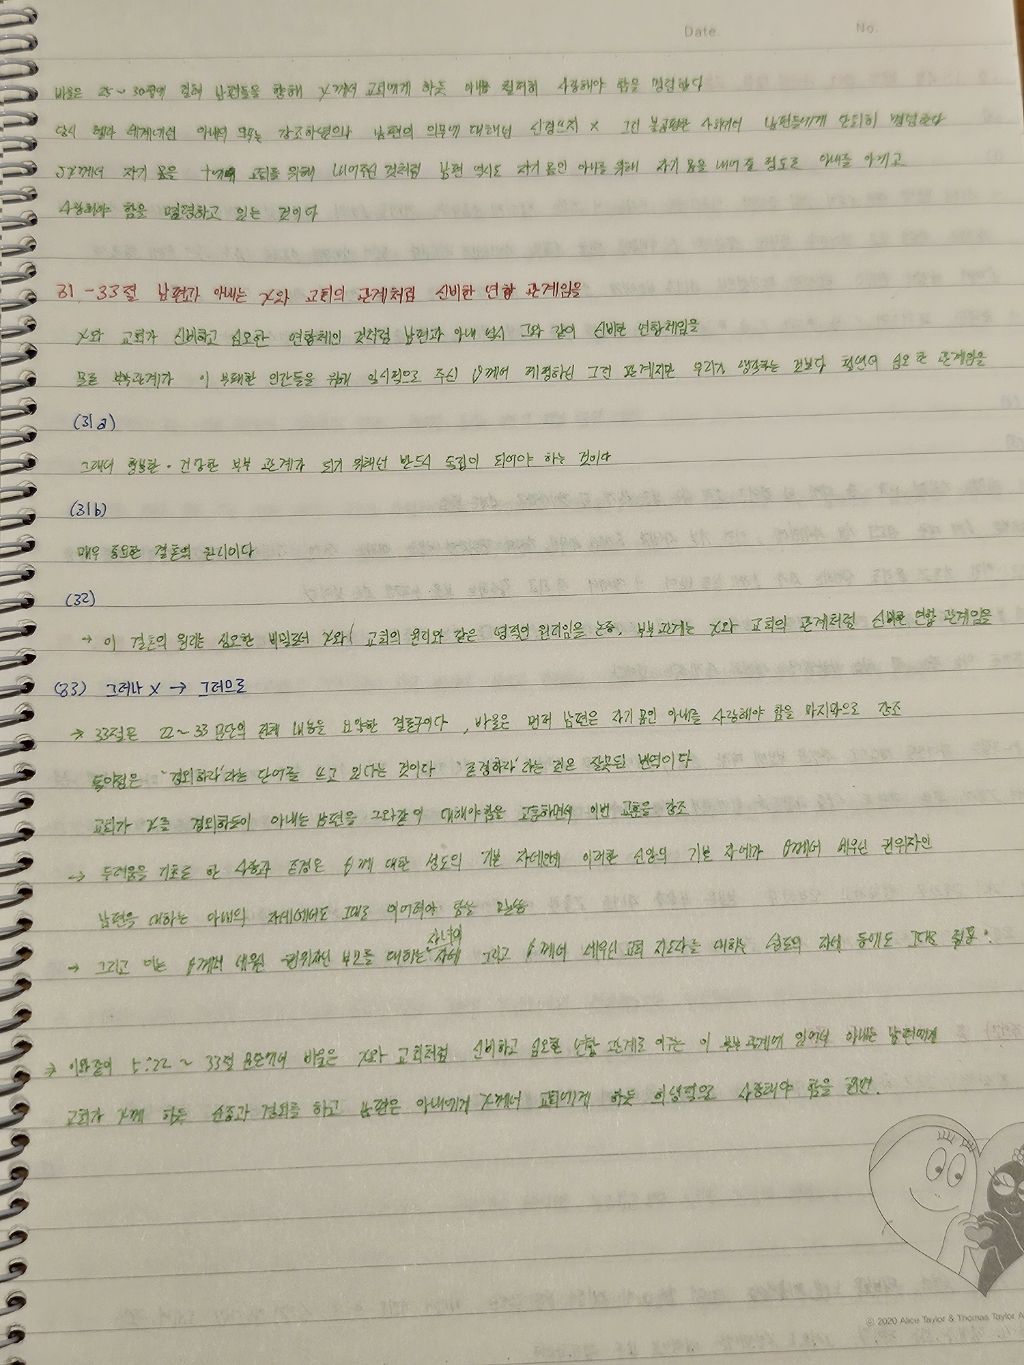 Date. No.
바울은 25~30절에 걸쳐 남편들을 향해 X께서 교회에게 하듯 아내를 사랑해야 함을 명령한다
당시 헬라 세계에선 아내의 의무는 강조하였으나 남편의 의무에 대해선 신경쓰지 X 그런 불공평한 사회에서 남편들에게 단호히 명령한다
JX께서 자기 몸을 교회를 위해 내어주신 것처럼 남편 역시도 자기 몸인 아내를 위해 자기 몸을 내어줄 정도로 아내를 아끼고
사랑해야 함을 명령하고 있는 것이다
31-33절 남편과 아내는 X와 교회의 관계처럼 신비한 연합 관계임을
X와 교회가 신비하고 심오한 연합체인 것처럼 남편과 아내 역시 그와 같이 신비한 연합체임을
모든 부부관계가 이 부패한 인간들을 위해 일시적으로 주신 께서 제정하신 그런 관계지만 우리가 생각하는 것보다 훨씬더 심오한 관계임을
(31a)
그래서 행복한·건강한 부부 관계가 되기 위해선 반드시 독립이 되어야 하는 것이다
(31b)
매우 중요한 결혼의 원리이다
(32)
→ 이 결혼의 원리는 심오한 비밀로서 X와 교회의 원리와 같은 영적인 원리임을 논증, 부부관계는 X와 교회의 관계처럼 신비한 연합 관계임을
(33) 그러나 X → 그러므로
→ 33절은 22~33 문단의 전체 내용을 요약한 결론구이다, 바울은 먼저 남편은 자기 몸인 아내를 사랑해야 함을 마지막으로 강조
특이점은 '경외하라'라는 단어를 쓰고 있다는 것이다 '존경하라'라는 것은 잘못된 번역이다
교회가 X를 경외하듯이 아내는 남편을 그와같이 대해야함을 교훈하면서 이번 교훈을 강조
→ 두려움을 기초로 한 사랑과 존경은 께 대한 성도의 기본 자세인데 이러한 신앙의 기본 자세가 께서 세우신 권위자인
남편을 대하는 아내의 자세에서도 그대로 이어져야 함을 말씀
→ 그리고 이는 께서 세우신 권위자인 부모를 대하는 자녀의 자세 그리고 께서 세우신 교회 지도자를 대하는 성도의 자세 등에도 그대로 적용.
→ 이와같이 5:22~33절 문단에서 바울은 X와 교회처럼 신비하고 심오한 연합 관계를 이루는 이 부부 관계에 있어서 아내는 남편에게
교회가 X께 하듯 순종과 경외를 하고 남편은 아내에게 X께서 교회에게 하듯 희생적으로 사랑해야 함을 권면.
© 2020 Alice Taylor & Thomas Taylor